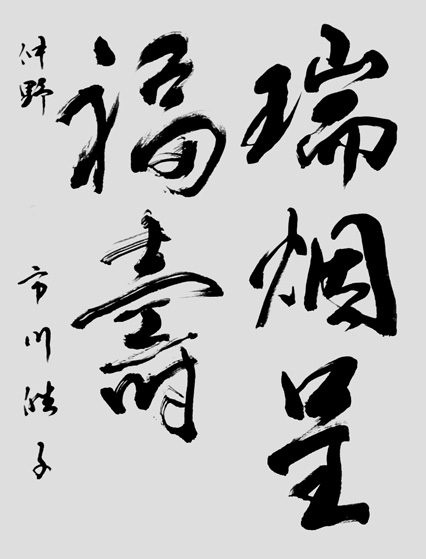 瑞烟呈
福壽
仲野 市川浩子